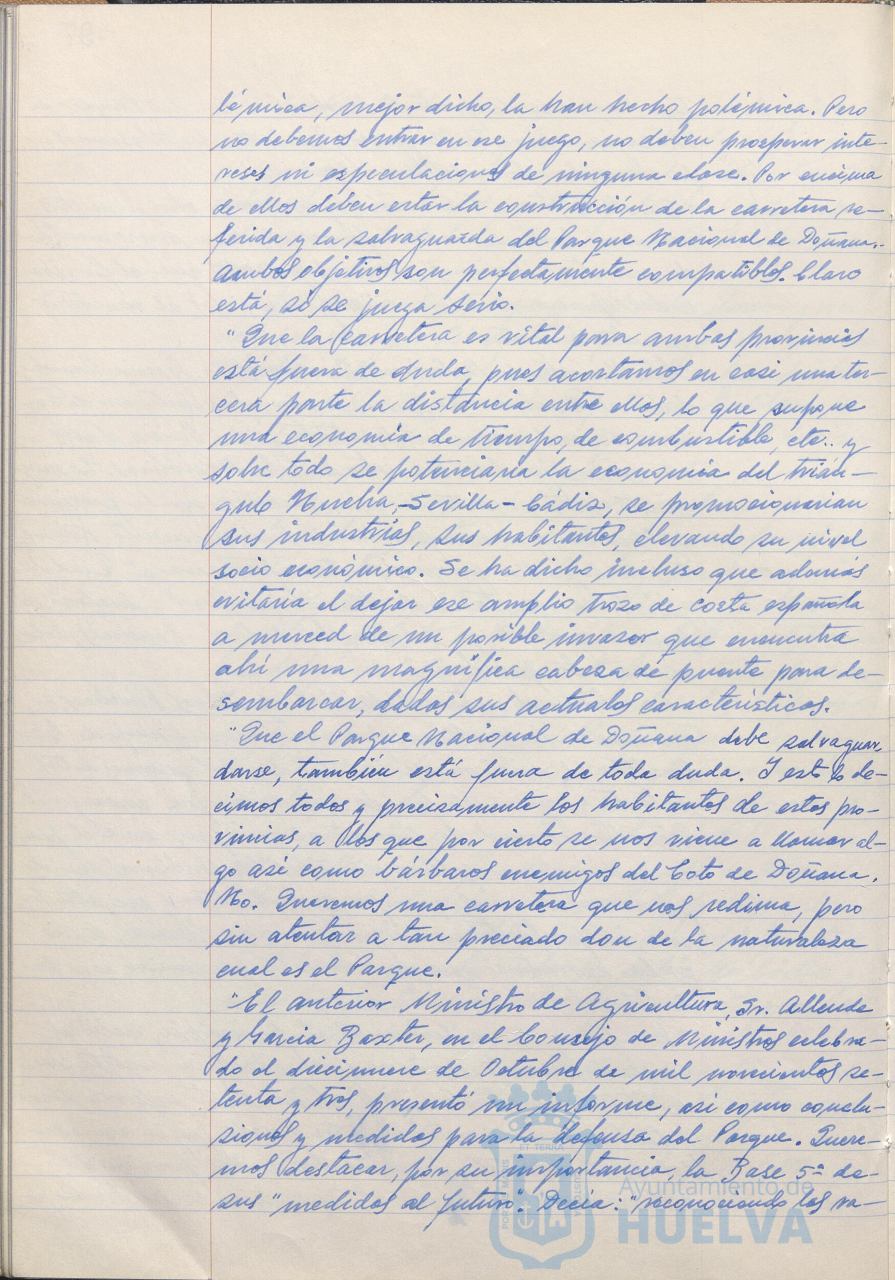 lémica, mejor dicho, la han hecho polémica. Pero
no debemos entrar en ese juego, no deben prosperar inte-
reses ni especulaciones de ninguna clase. Por encima
de ellos deben estar la construcción de la carretera re-
ferida y la salvaguarda del Parque Nacional de Doñana.-
Ambos objetivos son perfectamente compatibles. Claro
está, si se juega serio.
"Que la carretera es vital para ambas provincias
está fuera de duda, pues acortamos en casi una ter-
cera parte la distancia entre ellas, lo que supone
una economía de tiempo, de combustible, etc.. y
sobre todo se potenciaría la economía del trián-
gulo Huelva,-Sevilla-Cádiz, se promocionarían
sus industrias, sus habitantes, elevando su nivel
socio económico. Se ha dicho incluso que además
evitaría el dejar ese amplio trozo de costa española
a merced de un posible invasor que encuentra
ahí una magnífica cabeza de puente para de-
sembarcar, dadas sus actuales características.
"Que el Parque Nacional de Doñana debe salvaguar-
darse, también está fuera de toda duda. Y esto lo de-
cimos todos y precisamente los habitantes de estas pro-
vincias, a los que por cierto se nos viene a llamar al-
go así como bárbaros enemigos del Coto de Doñana.
No. Queremos una carretera que nos redima, pero
sin atentar a tan preciado don de la naturaleza
cual es el Parque.
"El anterior Ministro de Agricultura, Sr. Allende
y García Baxter, en el Consejo de Ministros celebra-
do el diecinueve de Octubre de mil novecientos se-
tenta y tres, presentó un informe, así como conclu-
siones y medidas para la defensa del Parque. Quere-
mos destacar, por su importancia, la Base 5ª de
sus "medidas al futuro". Decía: "reconociendo las va-
Ayuntamiento de
HUELVA